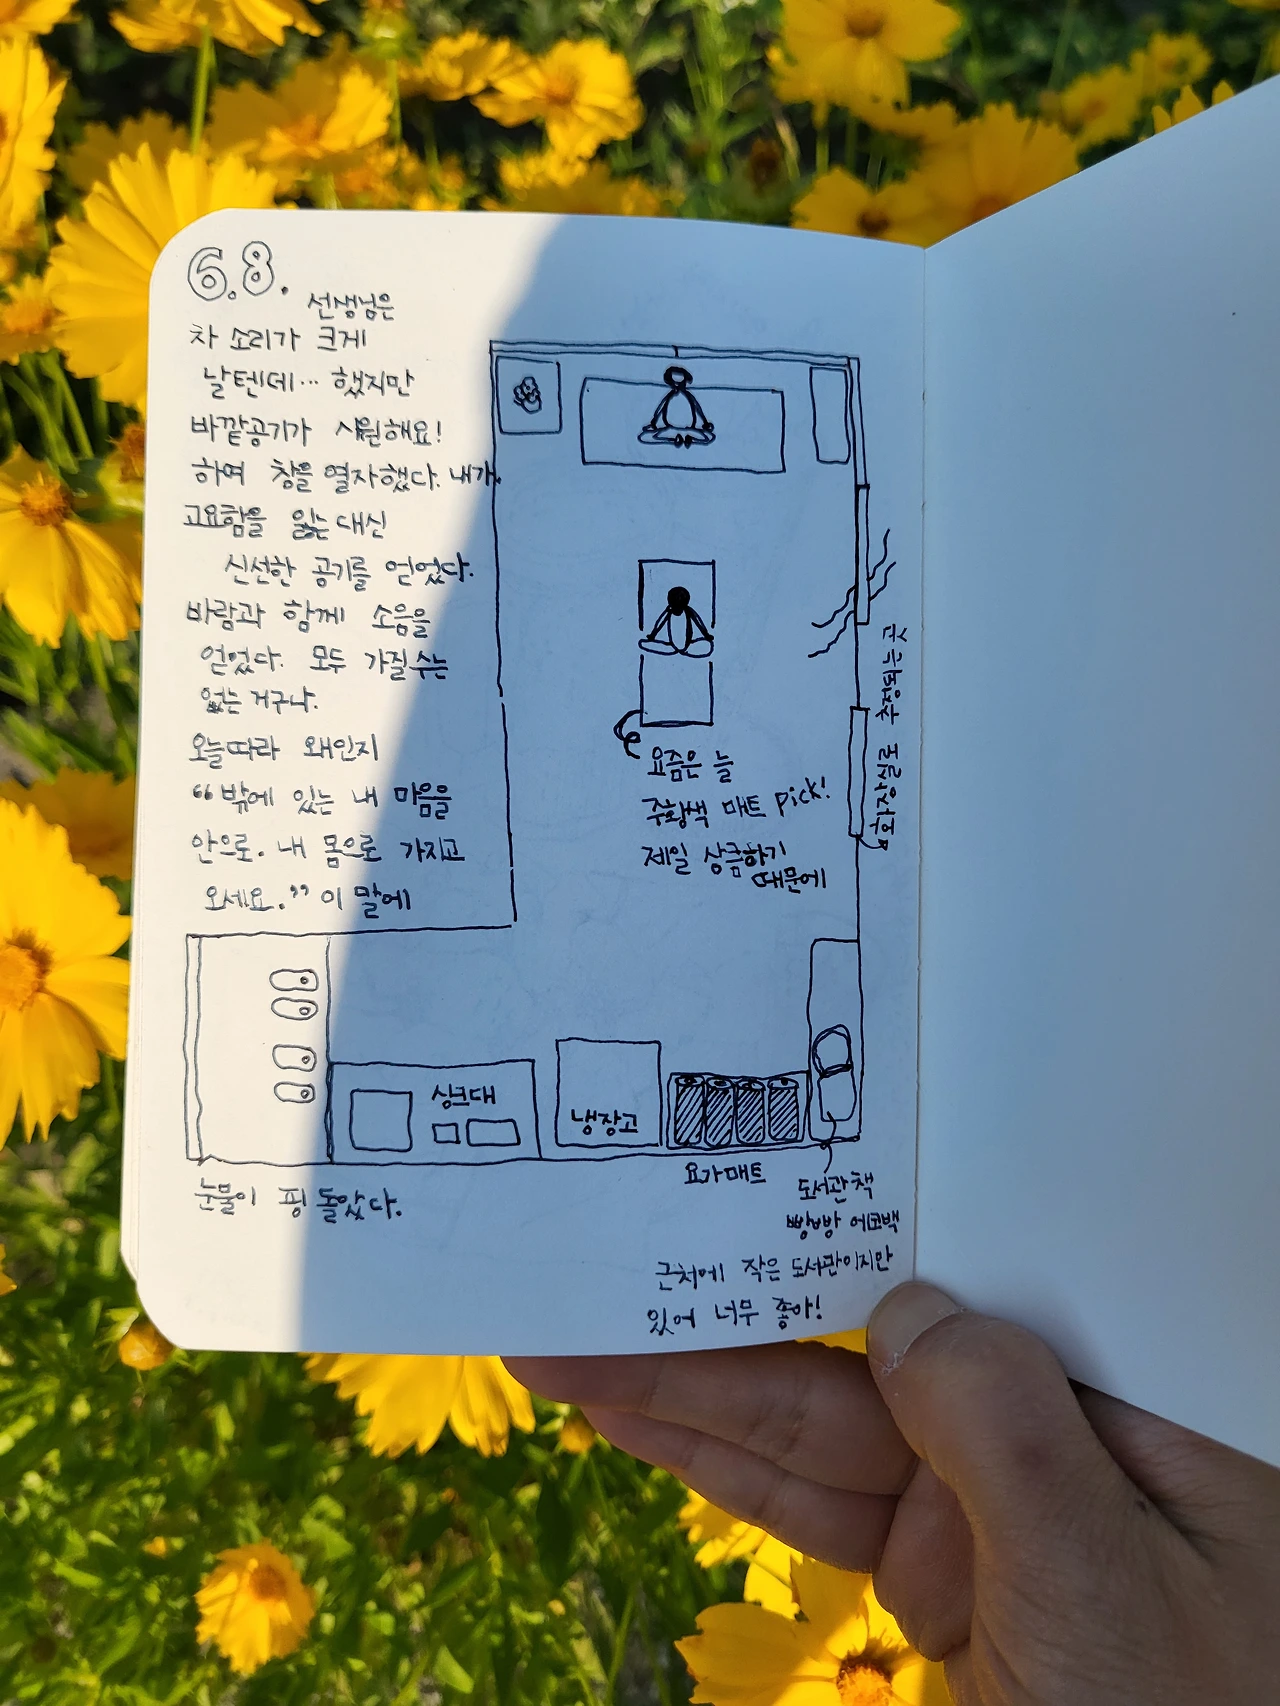 6.8.
선생님은
차 소리가 크게
날텐데... 했지만
바깥공기가 시원해요!
하여 창을 열자했다. 내가
고요함을 잃는 대신
신선한 공기를 얻었다.
바람과 함께 소음을
얻었다. 모두 가질 수는
없는 거구나.
오늘따라 왜인지
"밖에 있는 내 마음을
안으로. 내 몸으로 가지고
오세요." 이 말에
눈물이 핑 돌았다.
요즘은 늘
주황색 매트 pick!
제일 상큼하기
때문에
화장실로 추정되는 곳
싱크대
냉장고
요가매트
도서관 책
빵빵 에코백
근처에 작은 도서관이지만
있어 너무 좋아!